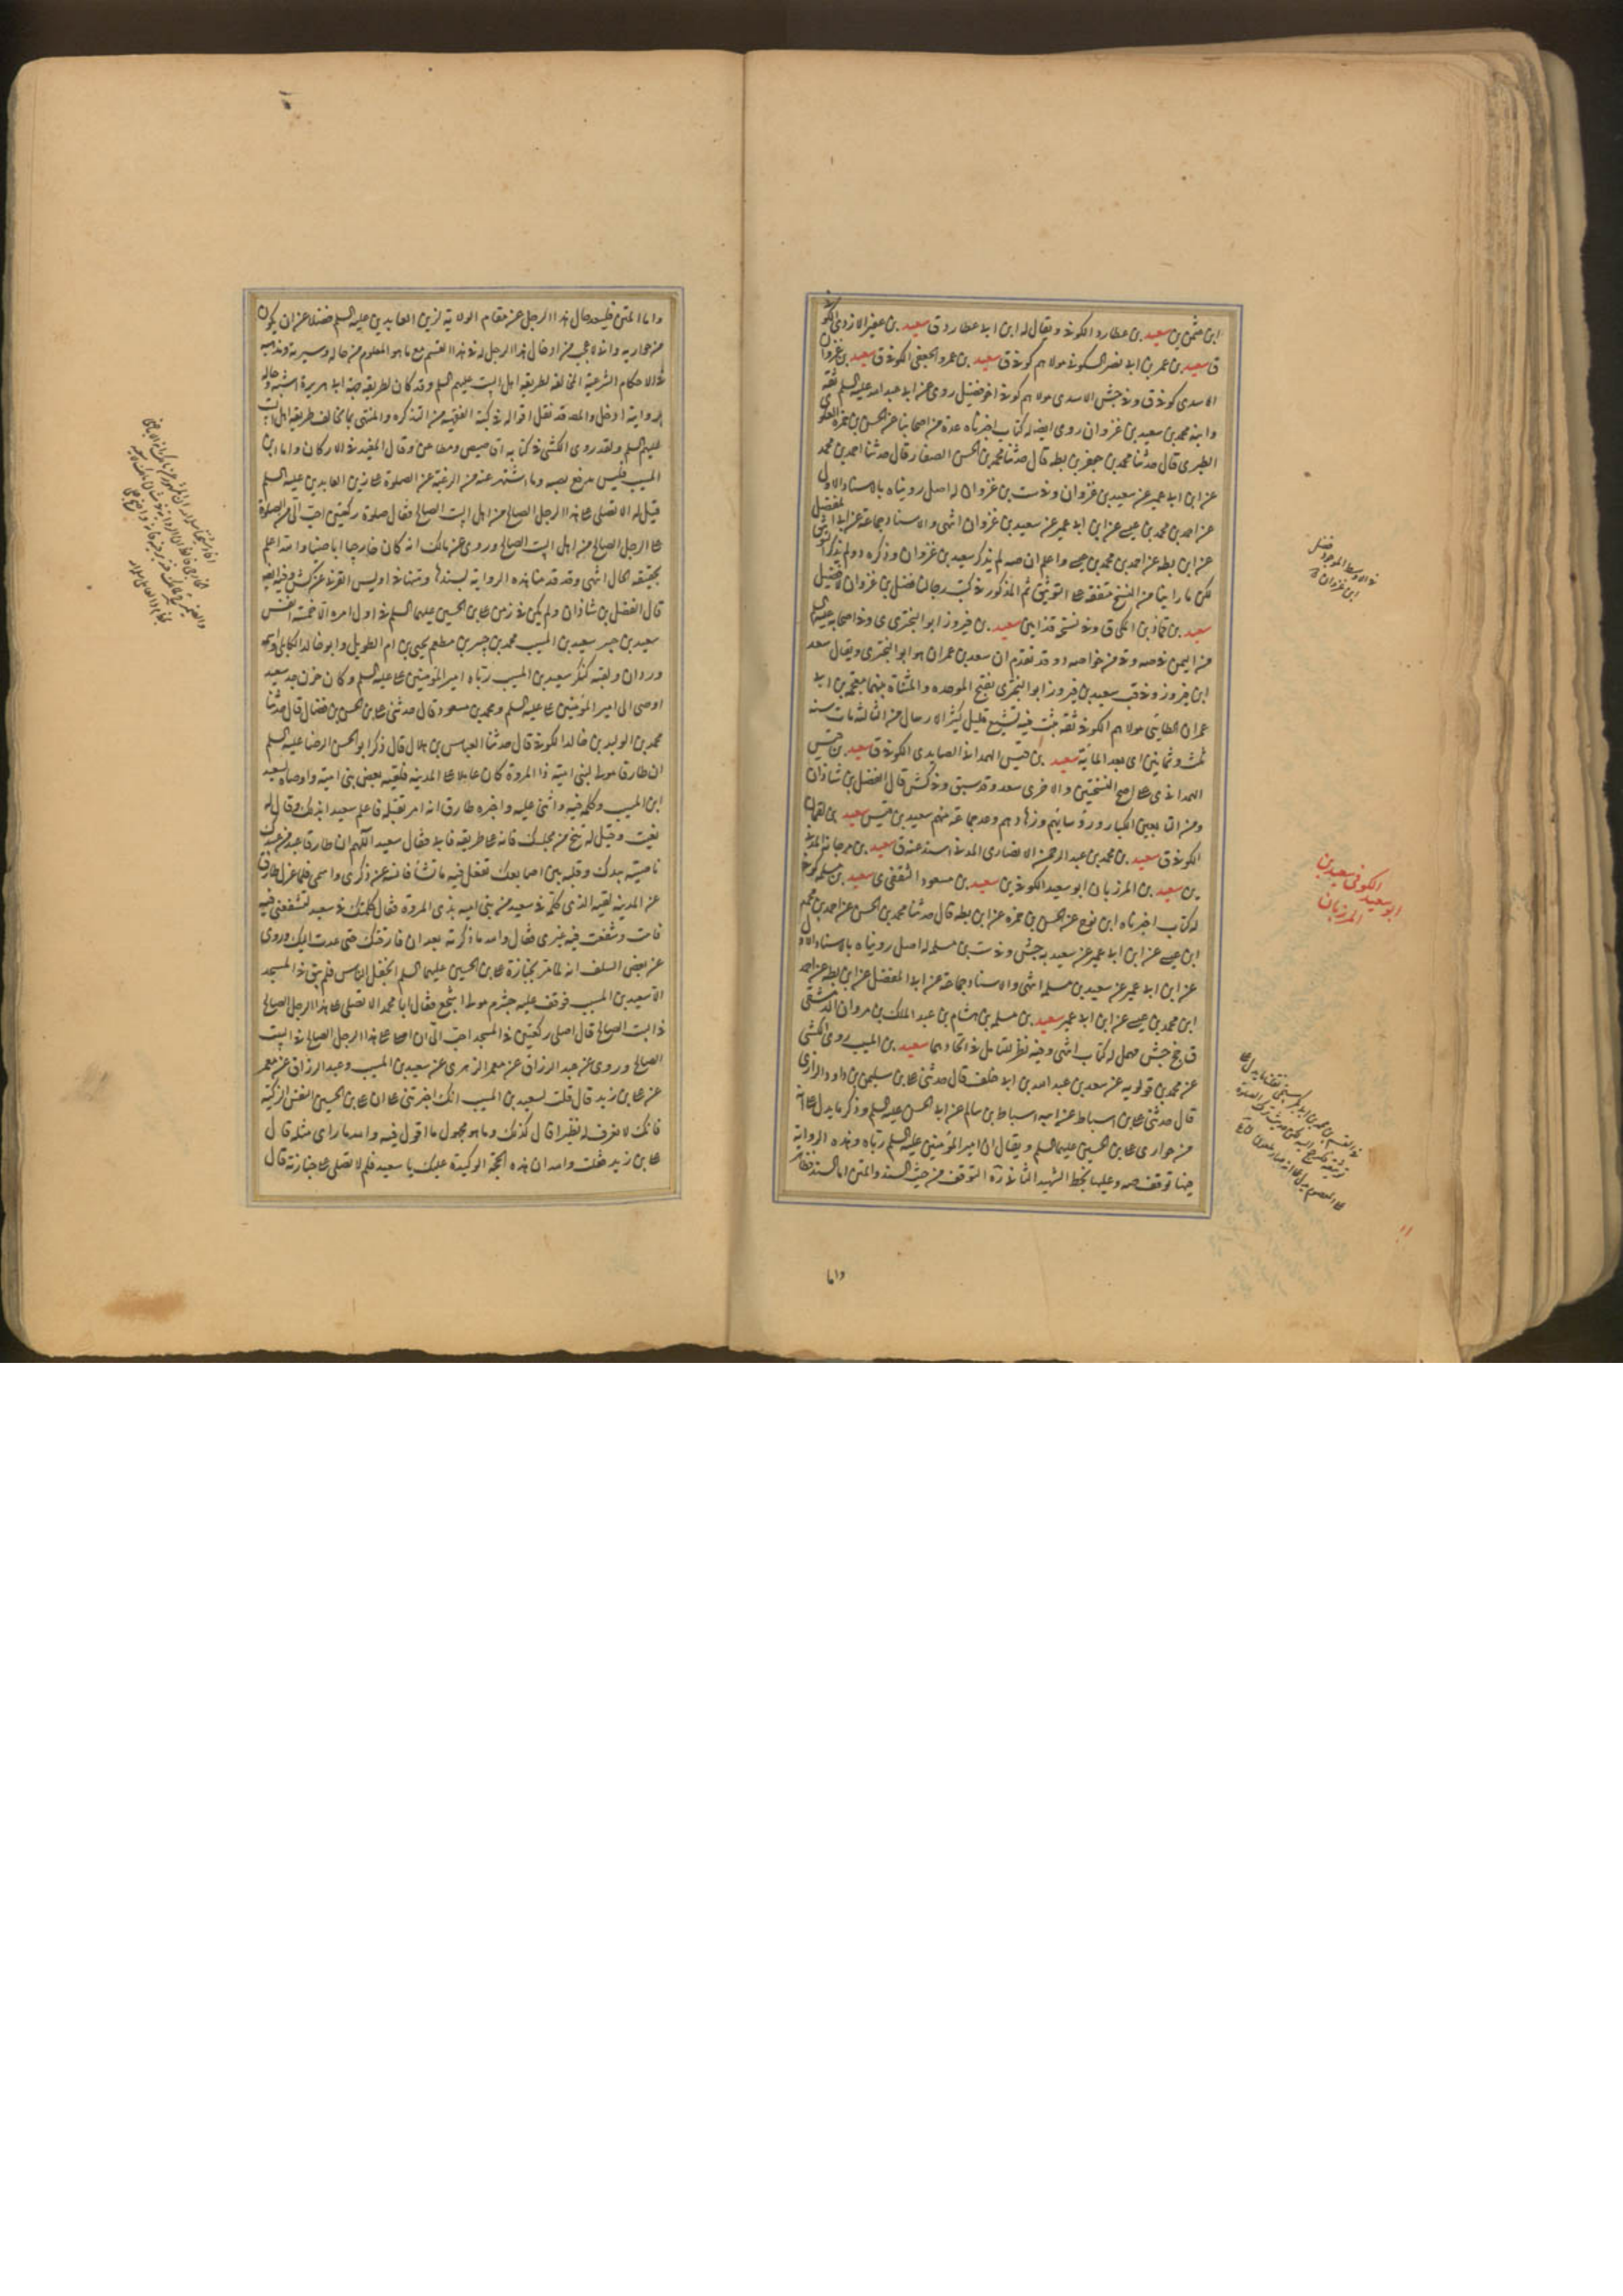 ابن عثمن ين سعيد بن عطارد الكوفى ويقال له ابن ابى عطارد ق سعيد بن عفير الازدى الكوفى
ق سعيد بن عمر بن ابى نصر السكونى مولاهم كوفى ق سعيد بن عمرو الجعفى الكوفى ق سعيد بن غزوان
الاسدى كوفى ق وفى جش الاسدى مولاهم كوفى اخو فضيل روى عن ابى عبد الله عليه السلم ثقة
وابنه محمد بن سعيد بن غزوان روى ايضا له كتاب اخبرناه عدة من اصحابنا عن الحسن بن حمزه العلوى
الطبرى قال حدثنا محمد بن جعفر بن بطه قال حدثنا محمد بن الحسن الصفار قال حدثنا احمد بن محمد
عن ابن ابى عمير عن سعيد بن غزوان وفى ست بن غزوان له اصل رويناه بالاسناد الاول
عن احمد بن محمد بن عيسى عن ابن ابى عمير عن سعيد بن غزوان انتهى والاسناد جماعة عن ابى المفضل
عن ابن بطه عن احمد بن محمد بن عيسى واعلم ان صه لم يذكر سعيد بن غزوان وذكره د ولم يذكر التوثيق
لكن ما راينا من النسخ متفقة على التوثيق ثم المذكور فى كتب رجالنا فضل بن غزوان لا فضيل
سعيد بن فيروز ابو البخترى ى وفى اصحابه عليه السلم
من اليمن فى صه وى من خواصه د وقد تقدم ان سعد بن عمران هو ابو البخترى ويقال سعد
ابن فيروز وفى قب سعيد بن فيروز ابو البخترى بفتح الموحده والمثناة بينهما معجمه بن ابى
عمران الطائى مولاهم الكوفى ثقه ثبت فيه تشيع قليل كثير الارسال من الثالثه مات سنه
ثلث وثمانين اى بعد المائة سعيد بن قيس الهمدانى الصايدى الكوفى ق سعيد بن قيس
الهمدانى ى على اصح النسختين والاخرى سعد وقد سبق وفى كش قال الفضل بن شاذان
ومن التابعين الكبار ورؤسائهم وزهادهم وعد جماعة منهم سعيد بن قيس سعيد بن لقمان
الكوفى ق سعيد بن محمد بن عبد الرحمن الانصارى المدنى اسند عنه ق سعيد بن مرجانه المدنى
ين سعيد بن المرزبان ابو سعيد الكوفى ين سعيد بن مسعود الثقفى ى سعيد بن مسلمه كوفى
له كتاب اخبرناه ابن نوح عن الحسن بن حمزه عن ابن بطه قال حدثنا محمد بن الحسن عن احمد بن محمد
ابن عيسى عن ابن ابى عمير عن سعيد به جش وفى ست بن مسلمه له اصل رويناه بالاسناد الاول
عن ابن ابى عمير عن سعيد بن مسلمه انتهى والاسناد جماعة عن ابى المفضل عن ابن بطه عن احمد
ابن محمد بن عيسى عن ابن ابى عمير سعيد بن مسلمه بن هشام بن عبد الملك بن مروان الدمشقى
ق جخ جش مهمل له كتاب انتهى وفيه نظر لتامل فى اتحادهما سعيد بن المسيب روى الكشى
عن محمد بن قولويه عن سعد بن عبد الله بن ابى خلف قال حدثنى على بن سليمن بن داود الرازى
قال حدثنى على بن اسباط عن ابيه اسباط بن سالم عن ابى الحسن عليه السلم وذكر ما يدل على انه
من حوارى على بن الحسين عليهما السلم ويقال ان امير المؤمنين عليه السلم رباه وهذه الرواية
فيها توقف صه وعليها بخط الشهيد الثانى ره التوقف من حيث السند والمتن اما السند فظاهر
واما
فى الاوسط الموجود فضل
ابن غزوان
الكوفى سعيد بن
ابو سعيد
المرزبان
واما المتن فلبعد حال هذا الرجل عن مقام الولاية لزين العابدين عليه السلم فضلا عن ان يكون
من حواريه وانى لاعجب من ادخال هذا الرجل فى هذا القسم مع ما هو المعلوم من حاله وسيرته ومذهبه
فى الاحكام الشرعية المخالفة لطريقة اهل البيت عليهم السلم وقد كان لطريقة جده ابى هريرة اشبه وحاله
بروايته ادخل والمصه قد نقل اقواله فى كتبه الفقهيه من التذكره والمنتهى بما يخالف طريقه اهل البيت
عليهم السلم ولقد روى الكشى فى كتابه اقاصيص ومطاعن وقال المفيد فى الاركان واما ابن
المسيب فليس يدفع نصبه وما اشتهر عنه من الرغبة عن الصلوة على زين العابدين عليه السلم
قيل له الا تصلى على هذا الرجل الصالح من اهل البيت الصالح فقال صلوة ركعتين احب الى من الصلوة
على الرجل الصالح من اهل البيت الصالح وروى عن مالك انه كان خارجيا اباضيا والله اعلم
بحقيقه الحال انتهى وقد قدمنا هذه الرواية بسندها ومتنها فى اويس القرنى عن كش وفيه ايضا
قال الفضل بن شاذان ولم يكن فى زمن على بن الحسين عليهما السلم فى اول امره الا خمسة انفس
سعيد بن جبير سعيد بن المسيب محمد بن جبير بن مطعم يحيى بن ام الطويل وابو خالد الكابلى واسمه
وردان ولقبه كنكر سعيد بن المسيب رباه امير المؤمنين على عليه السلم وكان حزن جد سعيد
اوصى الى امير المؤمنين على عليه السلم ومحمد بن مسعود قال حدثنى على بن الحسن بن فضال قال حدثنا
محمد بن الوليد بن خالد الكوفى قال حدثنا العباس بن هلال قال ذكر ابو الحسن الرضا عليه السلم
ان طارقا مولى لبنى امية ذا المروة كان عاملا على المدينه فلقيه بعض بنى امية واوصاه بسعيد
ابن المسيب وكلمه فيه واثنى عليه واخبره طارق انه امر بقتله فاعلم سعيد بذلك وقال له
تغيب وقيل له تنح من مجلسك فانه على طريقه فابى فقال سعيد اللهم ان طارقا عبد من عبيدك
ناصيته بيدك وقلبه بين اصابعك تفعل فيه ما تشأ فانسه عن ذكرى واسمى فلما عزل طارق
عن المدينه لقيه الذى كلمه فى سعيد من بنى اميه بذى المروة فقال كلمتك فى سعيد لتشفعنى فيه
فابيت وشفعت فيه غيرى فقال والله ما ذكرته بعد ان فارقتك حتى عدت اليك وروى
عن بعض السلف انه لما مر بجنازة على بن الحسين عليهما السلم انجفل الناس فلم يبق فى المسجد
الا سعيد بن المسيب فوقف عليه خشرم مولى اشجع فقال ابا محمد الا تصلى على هذا الرجل الصالح
فى البيت الصالح قال اصلى ركعتين فى المسجد احب الى ان اصلى على هذا الرجل الصالح فى البيت
الصالح وروى عن عبد الرزاق عن معمر الزهرى عن سعيد بن المسيب وعبد الرزاق عن معمر
عن على بن زيد قال قلت لسعيد بن المسيب انك اخبرتنى على ان على بن الحسين النفس الزكية
فانك لا تعرف له نظيرا قال كذلك وما هو مجهول ما اقول فيه والله ما راى مثله قال
على بن زيد فقلت والله ان هذه الحجة الوكيدة عليك يا سعيد فلم لا تصلى على جنازته قال